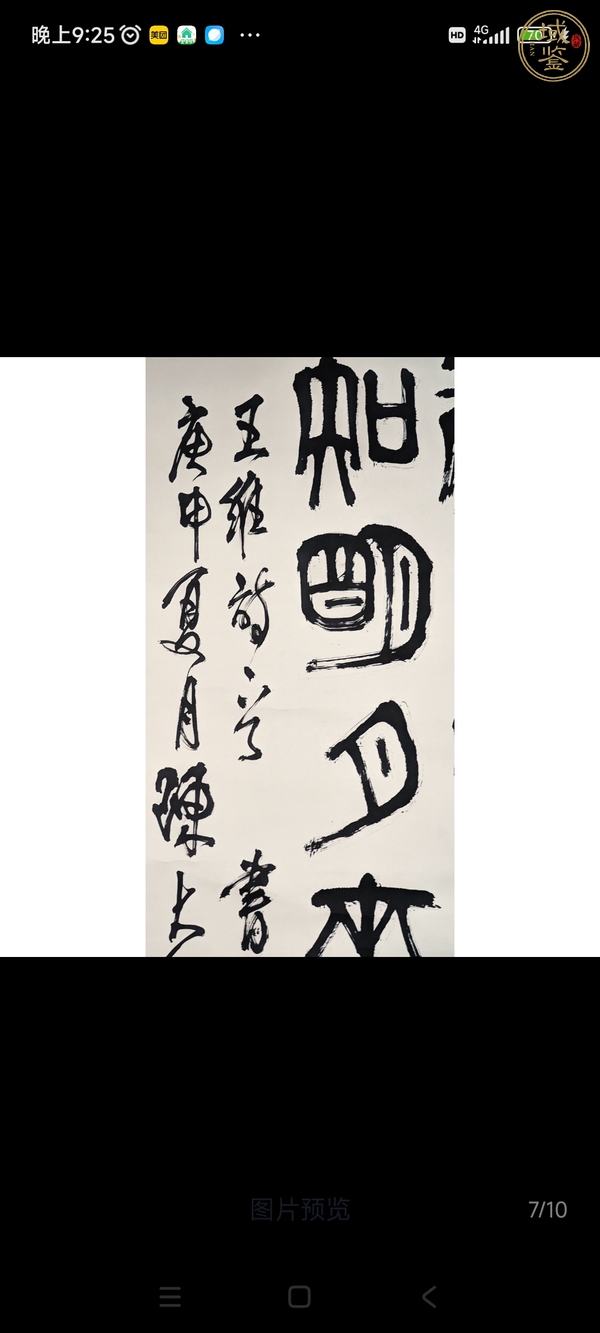 晚上9:25
美团
HD
4G
70
诚鉴
知明月來
王維詩一首 書
庚申夏月陳大
图片预览
7/10